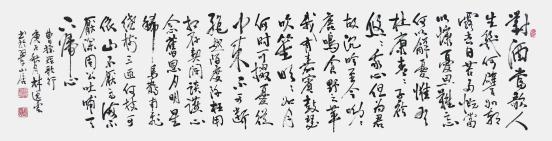 對酒當歌人
生幾何譬如朝
露去日苦多慨當
以慷憂思難忘
何以解憂惟有
杜康青青子衿
悠悠我心但為君
故沉吟至今呦呦
鹿鳴食野之苹
我有嘉賓鼓瑟
吹笙明明如月
何時可掇憂從
中來不可斷
絕越陌度阡枉用
相存契闊談讌心
念舊恩月明星
稀烏鵲南飛
繞樹三匝何枝可
依山不厭高海不
厭深周公吐哺天
下歸心
曹操短歌行